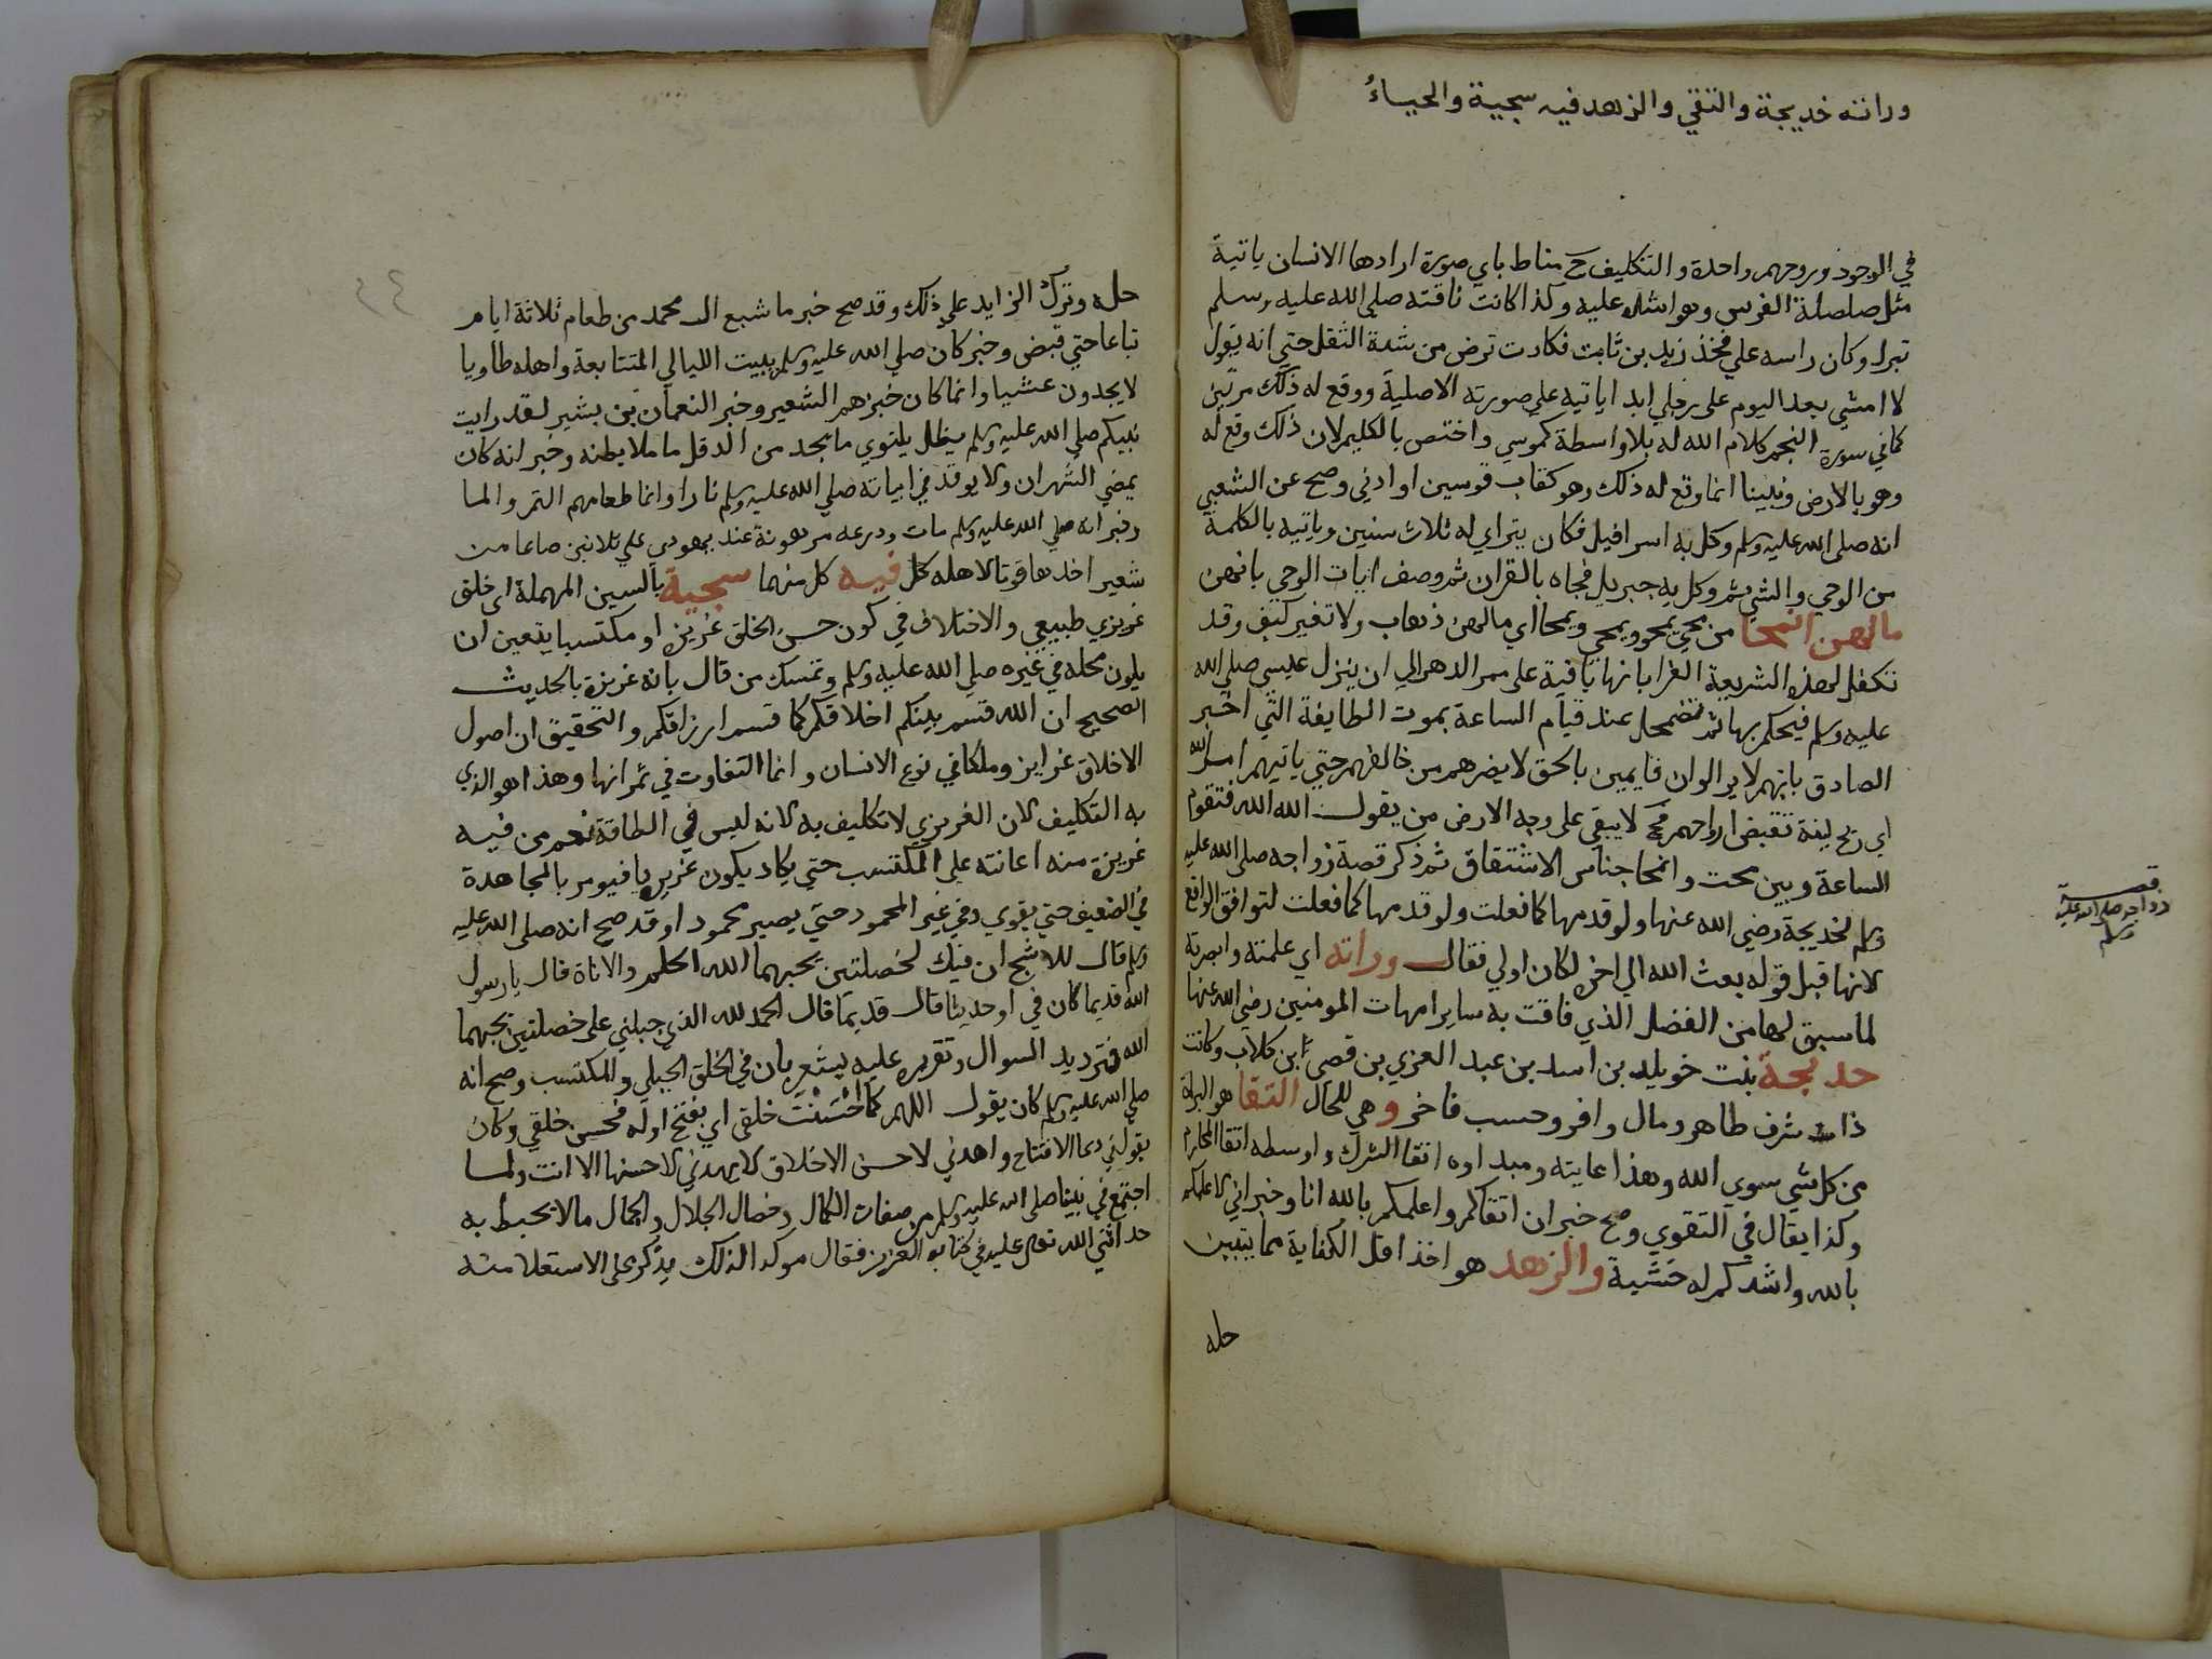 وراته خديجة والتقي والزهد فيه سجية والحياءُ
في الوجود وروحهم واحدة والتكليف ح مناط باي صورة ارادها الانسان ياتية
مثل صلصلة الفرس وهو اشده عليه وكذا كانت ناقته صلي الله عليه وسلم
تبرك وكان راسه علي فخذ زيد بن ثابت فكادت ترض من شدة الثقل حتي انه يقول
لا امشي بعد اليوم على رجلي ابدا ياتيه على صورته الاصلية ووقع له ذلك مرتين
كما في سورة النجم كلام الله له بلا واسطة كموسي واختص بالكليم لان ذلك وقع له
وهو بالارض ونبينا انما وقع له ذلك وهو كقاب قوسين او ادني وصح عن الشعبي
انه صلى الله عليه وسلم وكل به اسرافيل فكان يتراي له ثلاث سنين وياتيه بالكلمة
من الوحي والشي ثم وكل به جبريل فجاه بالقران ثم وصف ايات الوحي بانهن
ما لهن انمحا من محي يمحو ويمحي ويمحا اي ما لهن ذهاب ولا تغير كيف وقد
تكفل لهذه الشريعة الغرا بانها باقية على ممر الدهر الي ان ينزل عيسي صلي الله
عليه وسلم فيحكم بها ثم تضمحل عند قيام الساعة بموت الطايفة التي اخبر
الصادق بانهم لا يزالوان قايمين بالحق لا يضرهم من خالفهم حتي ياتيهم امر الله
اي ريح لينة تقبض ارواحهم فح لا يبقي على وجه الارض من يقول الله الله فتقوم
الساعة وبين محت وانمحا جناس الاشتقاق ثم ذكر قصة زواجه صلى الله عليه
وسلم لخديجة رضي الله عنها ولو قدمها كما فعلت ولو قدمها كما فعلت لتوافق الواقع
لانها قبل قوله بعث الله الي اخره لكان اولي فقال وراته اي علمته وابصرته
لما سبق لها من الفضل الذي فاقت به ساير امهات المومنين رضي الله عنها
خديجة بنت خويلد بن اسد بن عبد العزي بن قصي ابن كلاب وكانت
ذات شرف طاهر ومال وافر وحسب فاخر و هي للحال التقا هو البراة
من كل شي سوي الله وهذا غايته ومبداوه اتقا الشرك واوسطه اتقا المحارم
وكذا يقال في التقوي وصح خبر ان اتقاكم واعلمكم بالله انا وخبر اني لاعلمكم
بالله واشدكم له خشية والزهد هو اخذ اقل الكفاية مما يتيقن
حله
قصة
زواجه صلى الله عليه
وسلم
٢٤
حله وترك الزايد علي ذلك وقد صح خبر ما شبع ال محمد من طعام ثلاثة ايام
تباعا حتي قبض وخبر كان صلي الله عليه وسلم يبيت الليالي المتتابعة واهله طاويا
لا يجدون عشيا وانما كان خبزهم الشعير وخبر النعمان بن بشير لقد رايت
نبيكم صلي الله عليه وسلم يظل يلتوي ما يجد من الدقل ما ملا بطنه وخبر انه كان
يمضي الشهران ولا يوقد في ابياته صلي الله عليه وسلم نارا وانما طعامهم التمر والما
وخبر انه صلي الله عليه وسلم مات ودرعه مرهونة عند يهودي علي ثلاثين صاعا من
شعير اخذها قوتا لاهله كل فيه كل منهما سجية بالسين المهملة اي خلق
غريزي طبيعي والاختلاف في كون حسن الخلق غريزة او مكتسبا يتعين ان
يكون محله في غيره صلي الله عليه وسلم وتمسك من قال بانه غريزة بالحديث
الصحيح ان الله قسم بينكم اخلاقكم كما قسم ارزاقكم والتحقيق ان اصول
الاخلاق غرايز وملكا في نوع الانسان وانما التفاوت في ثمراتها وهذا هو الذي
به التكليف لان الغريزي لا تكليف به لانه ليس في الطاقة نعم من فيه
غريزة منه اعانته علي المكتسب حتي يكاد يكون غريزيا فيومر بالمجاهدة
في الضعيف حتي يقوي وفي غير المحمود حتي يصير محمودا وقد صح انه صلى الله عليه
وسلم قال للاشج ان فيك لخصلتين يحبهما الله الحلم والاناة قال يا رسول
الله قديما كان في او حديثا قال قديما قال الحمد لله الذي جبلني على خصلتين يحبهما
الله فترديد السوال وتقريره عليه يشعر بان في الخلق الجبلي والمكتسب وصح انه
صلي الله عليه وسلم كان يقول اللهم كما اَحْسَنْتَ خلقي اي بفتح اوله فحسن خلقي وكان
يقول في دعا الافتتاح واهدني لاحسن الاخلاق لا يهدني لاحسنها الا انت ولما
اجتمع في نبينا صلى الله عليه وسلم من صفات الكمال وخصال الجلال والجمال ما لا يحيط به
حد اثني الله تعالى عليه في كتابه العزيز فقال موكدا لذلك يذكر على الاستعلا منه